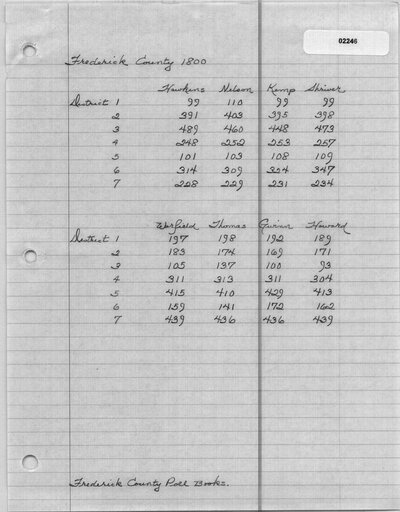 02246
Frederick County 1800
Hawkins Nelson Kemp Shriver
District 1 99 110 99 99
2 391 403 395 398
3 489 460 448 473
4 248 252 253 257
5 101 103 108 109
6 314 309 324 347
7 228 229 231 234
Warfield Thomas Quinn Howard
District 1 197 198 192 189
2 183 174 169 171
3 105 137 100 93
4 311 313 311 304
5 415 410 429 413
6 159 141 172 162
7 439 436 436 439
Frederick County Poll Books.